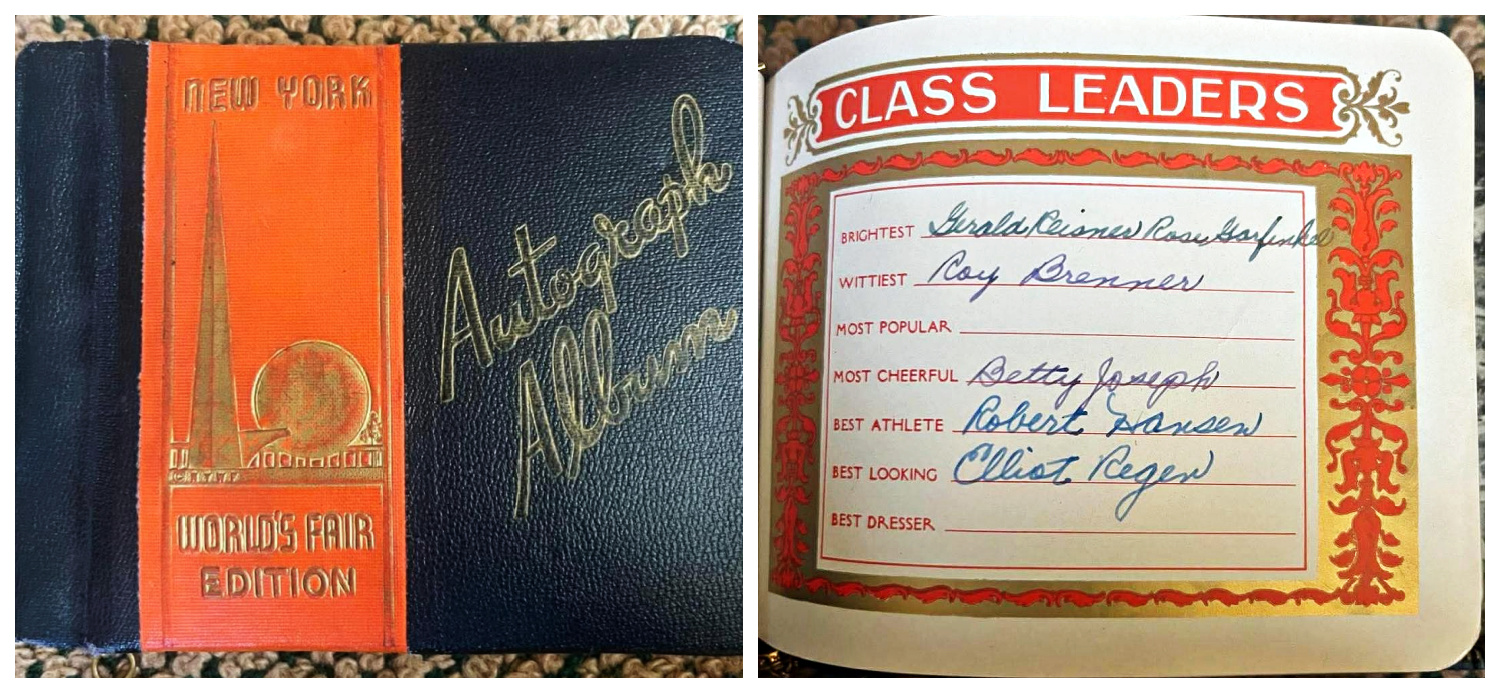 NEW YORK
WORLD'S FAIR
EDITION
Autograph
Album
CLASS LEADERS
BRIGHTEST Gerald Reisner Rose Garfinkel
WITTIEST Roy Brenner
MOST POPULAR
MOST CHEERFUL Betty Joseph
BEST ATHLETE Robert Hansen
BEST LOOKING Elliot Regen
BEST DRESSER